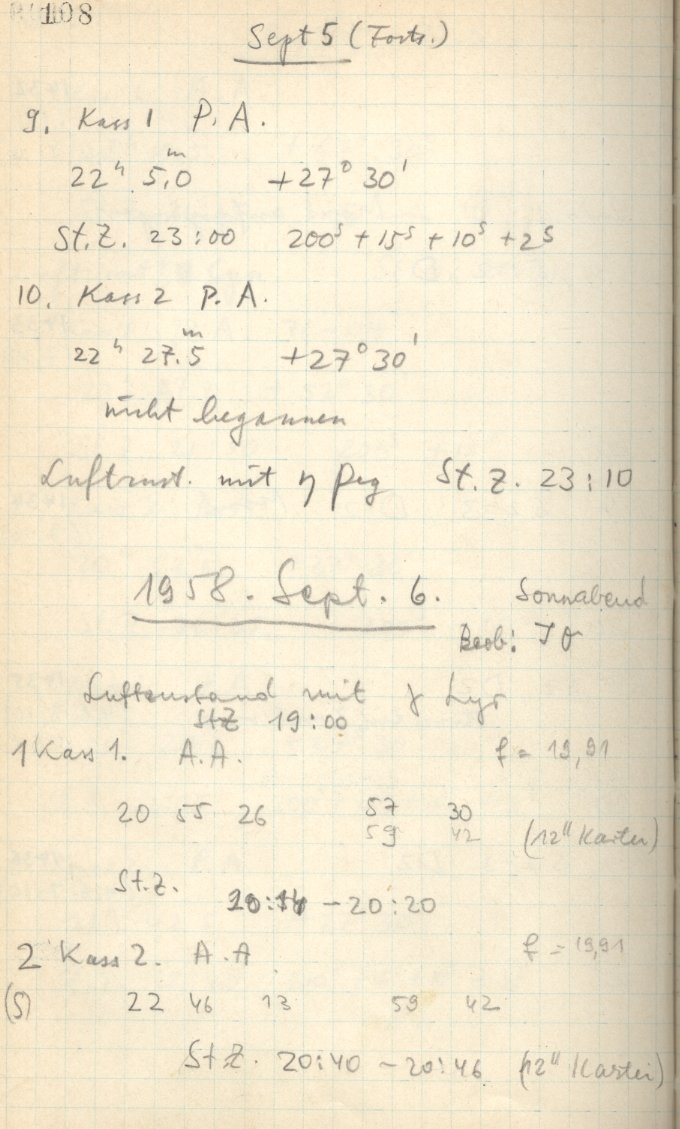 108
Sept 5 (Forts.)
9. Kass 1 P. A.
22ʰ 5,0ᵐ +27° 30'
St.Z. 23:00 200ˢ + 15ˢ + 10ˢ + 2ˢ
10. Kass 2 P. A.
22ʰ 27.5ᵐ +27° 30'
nicht begonnen
Luftzust. mit η Peg St.Z. 23:10
1958. Sept. 6. Sonnabend
Beob:
Luftzustand mit γ Lyr
StZ 19:00
1 Kass 1. A.A. f = 19,91
20 55 26 57 30
59 42 (12" Kartei)
St.Z. – 20:20
2 Kass 2. A.A f = 19,91
(S) 22 46 13 59 42
StZ. 20:40 – 20:46 (12" Kartei)